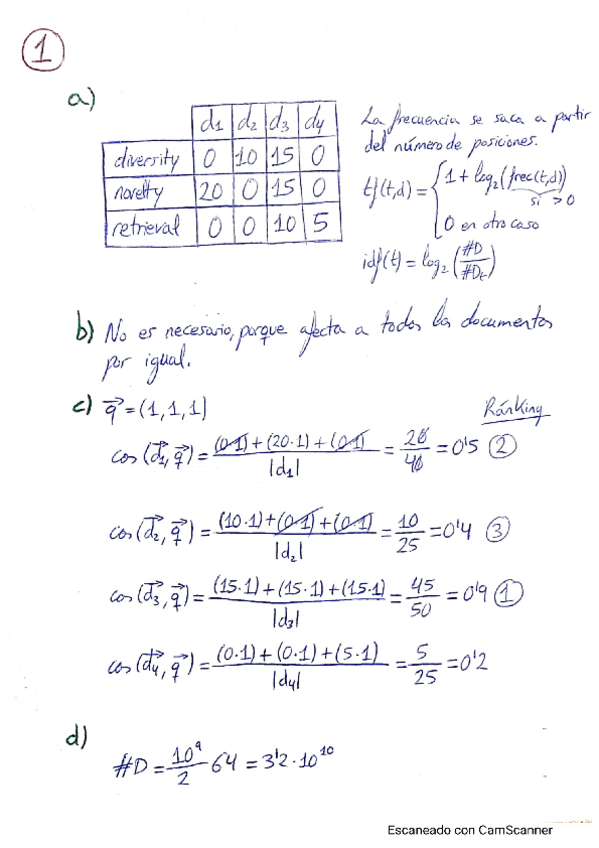 1
a)
d1 d2 d3 d4
diversity 0 10 15 0
novelty 20 0 15 0
retrieval 0 0 10 5
La frecuencia se saca a partir
del número de posiciones.
tf(t,d) = { 1 + log2(frec(t,d))
si > 0
0 en otro caso
idf(t) = log2 (#D / #Dt)
b) No es necesario, porque afecta a todos los documentos
por igual.
c) q⃗ = (1, 1, 1)
Ránking
cos(d⃗1, q⃗) = (0·1) + (20·1) + (0·1) / |d1| = 20/40 = 0'5 2
cos(d⃗2, q⃗) = (10·1) + (0·1) + (0·1) / |d2| = 10/25 = 0'4 3
cos(d⃗3, q⃗) = (15·1) + (15·1) + (15·1) / |d3| = 45/50 = 0'9 1
cos(d⃗4, q⃗) = (0·1) + (0·1) + (5·1) / |d4| = 5/25 = 0'2
d)
#D = 10^9/2 · 64 = 3'2 · 10^10
Escaneado con CamScanner